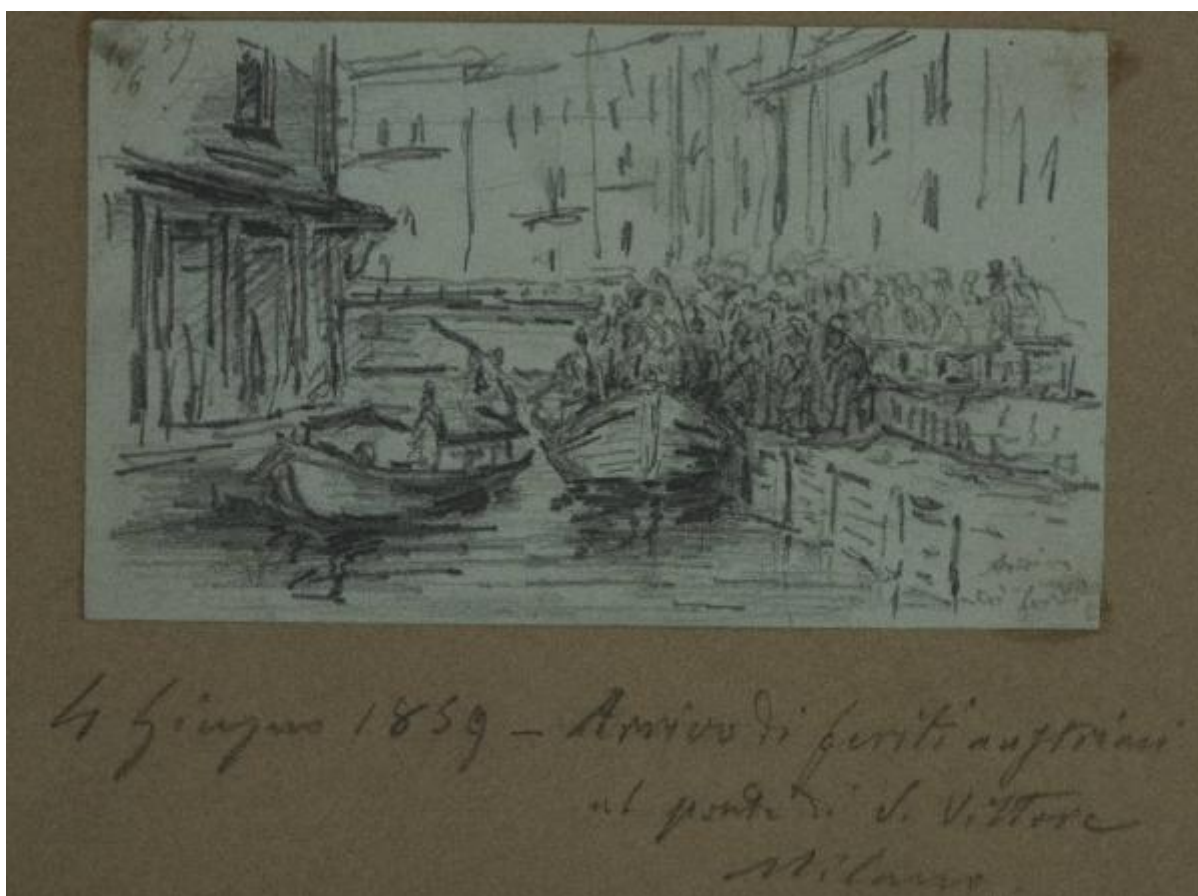 59
4 Giugno 1859 – Arrivo di feriti austriaci
al ponte di S. Vittore
Milano